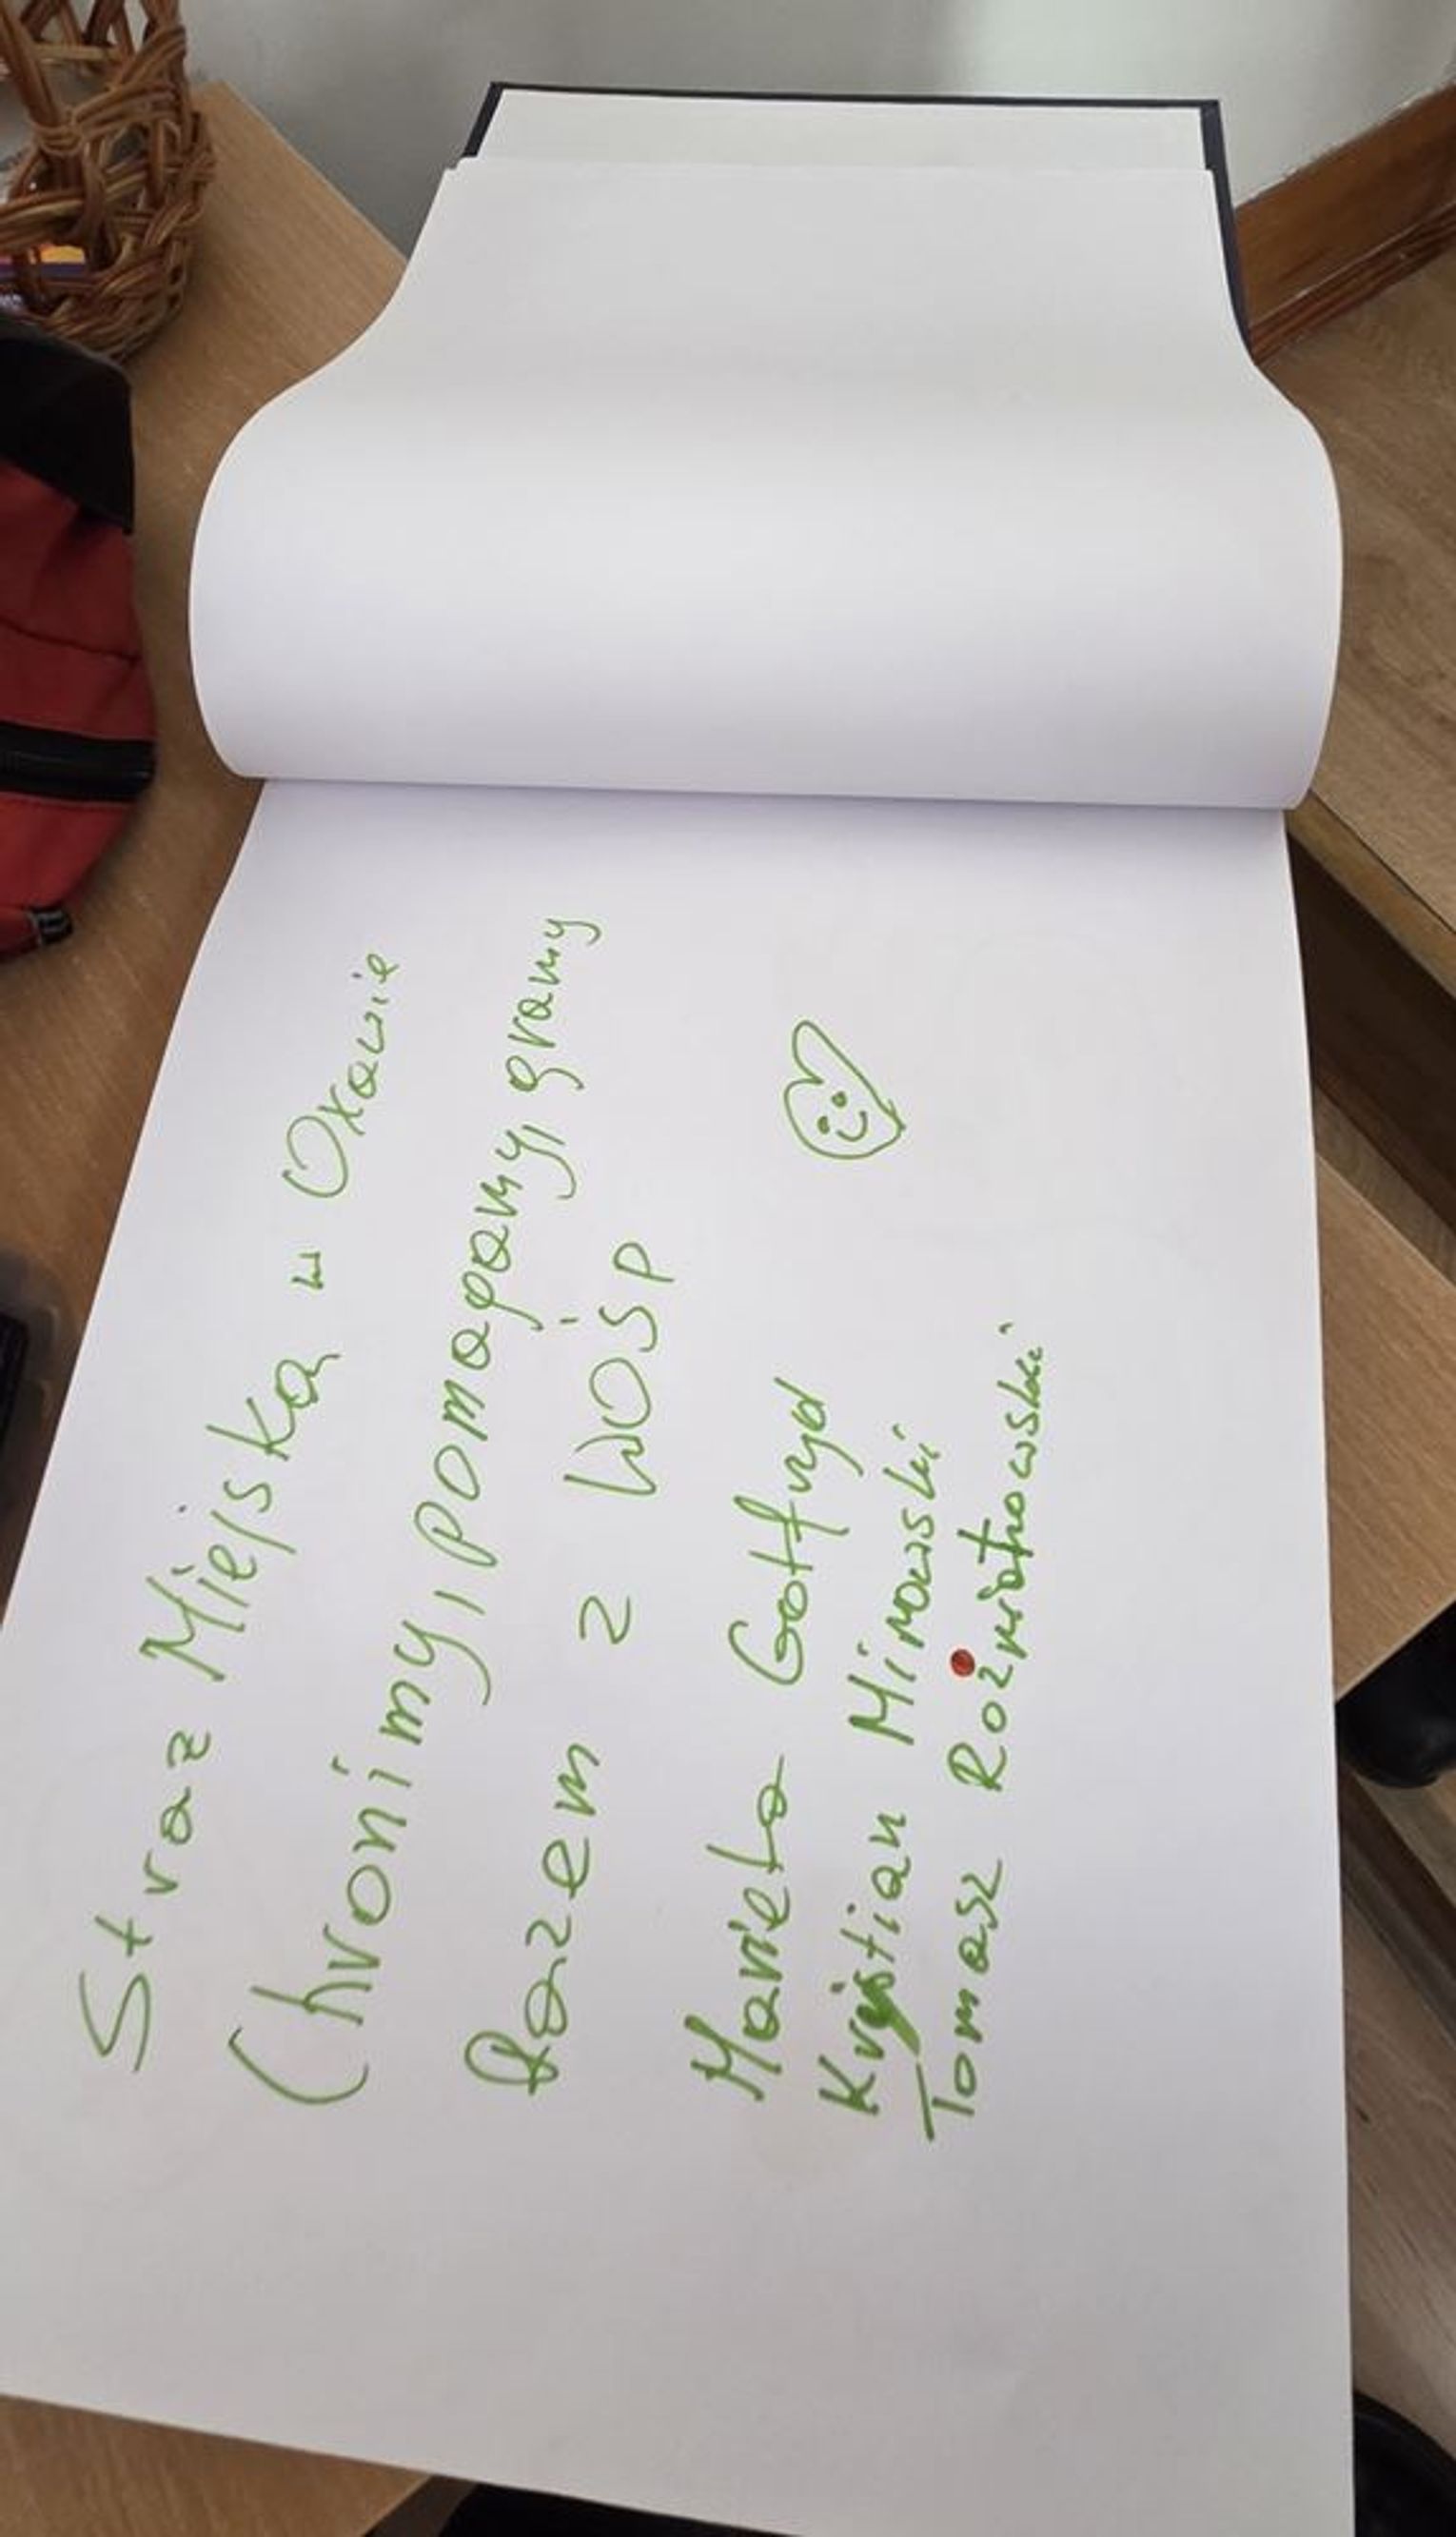 Straż Miejska w Oławie
Chronimy, pomagamy, gramy
Razem z WOŚP
Marieta Gotfryd
Krystian Mirowski
Tomasz Rożniatowski